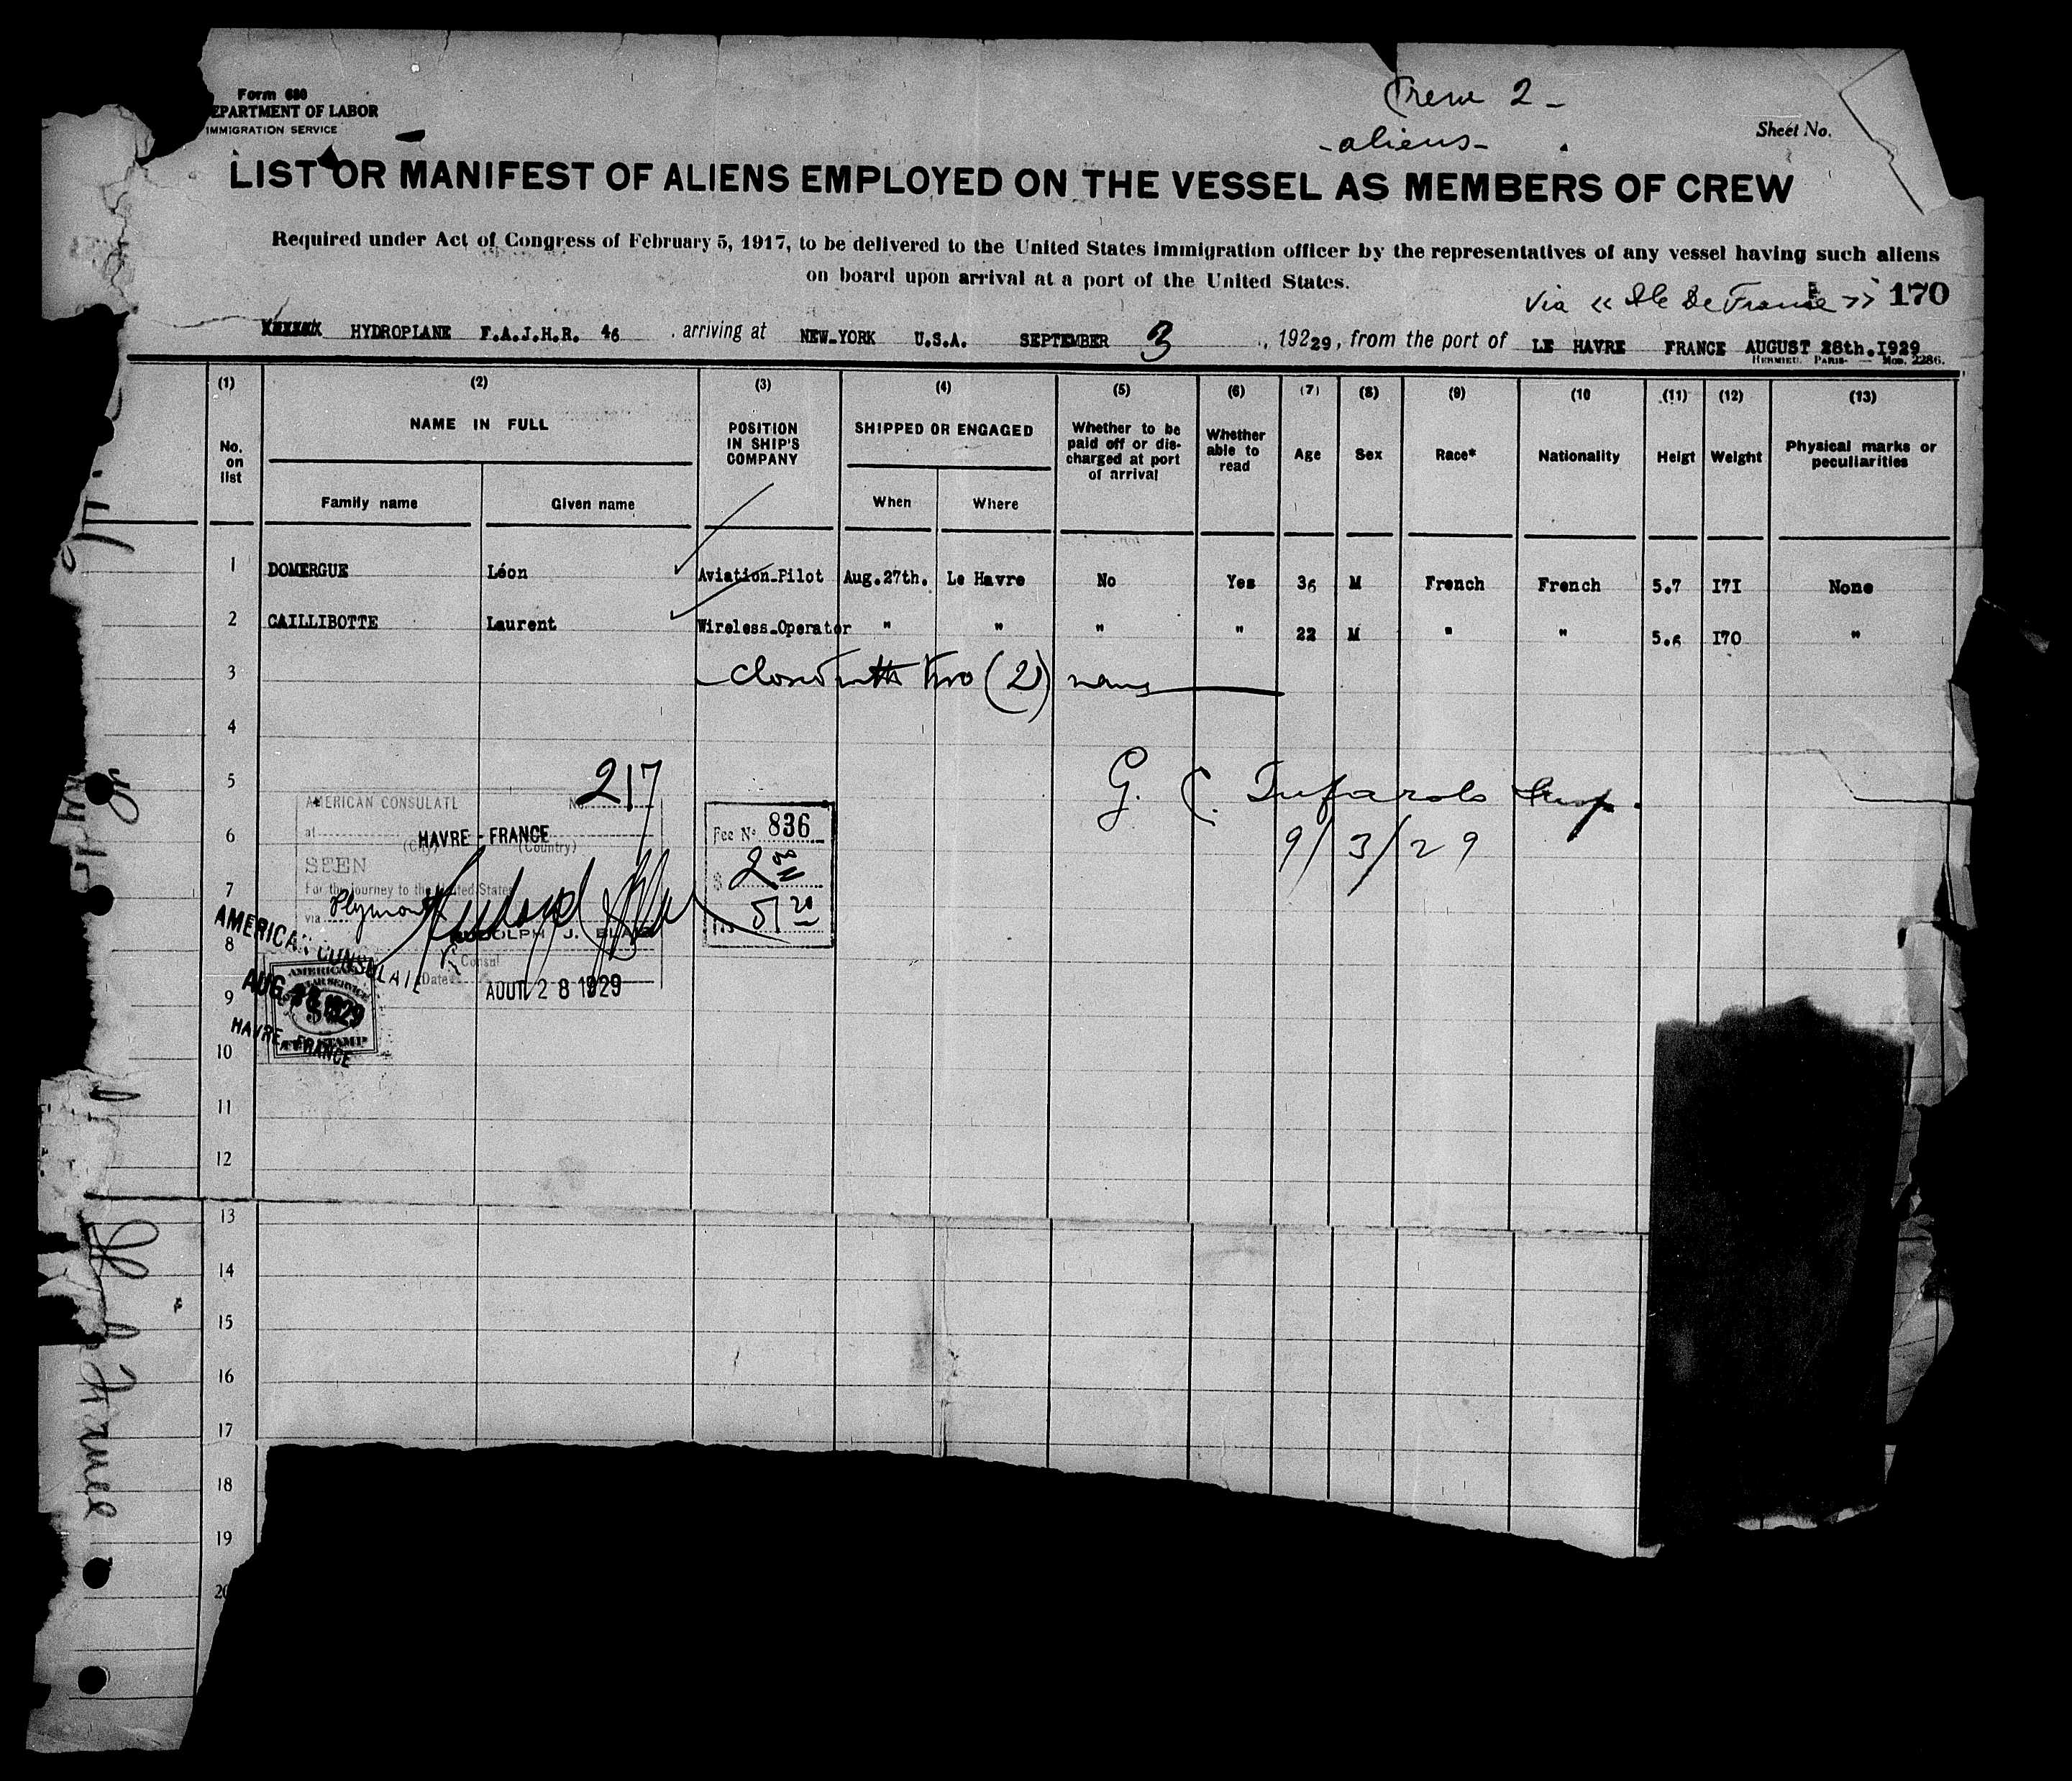 Form 680
EPARTMENT OF LABOR
IMMIGRATION SERVICE
Crew 2 -
- aliens -
Sheet No.
LIST OR MANIFEST OF ALIENS EMPLOYED ON THE VESSEL AS MEMBERS OF CREW
Required under Act of Congress of February 5, 1917, to be delivered to the United States immigration officer by the representatives of any vessel having such aliens
on board upon arrival at a port of the United States.
Via « Ile De France » 170
HYDROPLANE F.A.J.H.R. 46 arriving at NEW-YORK U.S.A. SEPTEMBER 3, 19229, from the port of LE HAVRE FRANCE AUGUST 28th.1929
HERMIEU. PARIS — Mod. 2286.
(1) (2) (3) (4) (5) (6) (7) (8) (9) (10 (11) (12) (13)
No. on list
NAME IN FULL
Family name
Given name
POSITION IN SHIP'S COMPANY
SHIPPED OR ENGAGED
When
Where
Whether to be paid off or dis-charged at port of arrival
Whether able to read
Age
Sex
Race*
Nationality
Heigt
Weight
Physical marks or peculiarities
1 DOMERGUE Léon Aviation-Pilot Aug.27th. Le Havre No Yes 36 M French French 5.7 I7I None
2 CAILLIBOTTE Laurent Wireless-Operator " " " " 22 M " " 5.6 I70 "
3 Closed with two (2) names
4
5
6
7
8
9
10
11
12
13
14
15
16
17
18
19
20
G. C. Tufarolo Insp.
9/3/29
AMERICAN CONSULATE
No. 217
at HAVRE - FRANCE
(City) (Country)
SEEN
For the journey to the United States
via Plymouth
RUDOLPH J. BLAIS
Consul
Date AOUT 28 1929
Fee No. 836
$ 2
5 20
AMERICAN CONSULATE
AUG 28 1929
HAVRE, FRANCE
AMERICAN
FEE STAMP
Ile de France